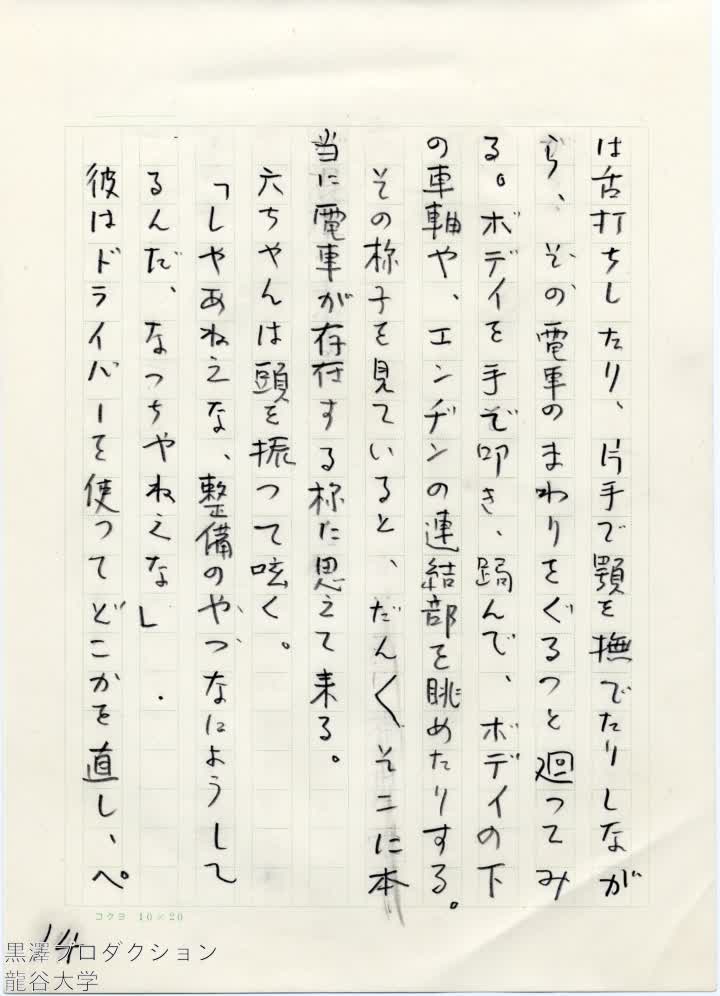 は舌打ちしたり、片手で顎を撫でたりしなが
ら、その電車のまわりをぐるつと廻つてみ
る。ボデイを手で叩き、跼んで、ボデイの下
の車軸や、エンヂンの連結部を眺めたりする。
その様子を見ていると、だん〱そこに本
当に電車が存在する様に思えて来る。
六ちやんは頭を振つて呟く。
「しやあねえな、整備のやつなにようして
るんだ、なつちやねえな」
彼はドライバーを使つてどこかを直し、ペ
コクヨ 10×20
14
黒澤プロダクション
龍谷大学